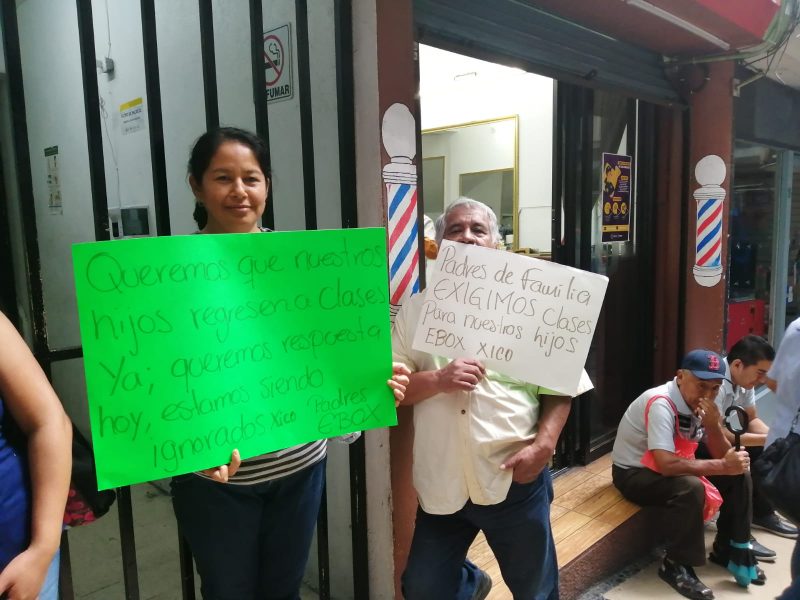 FUMAR
Queremos que nuestros
hijos regresen a clases
Ya; queremos respuesta
hoy, estamos siendo
ignorados. Xico Padres
EBOX
Padres de Familia
EXIGIMOS clases
Para nuestros hijos
EBOX XICO